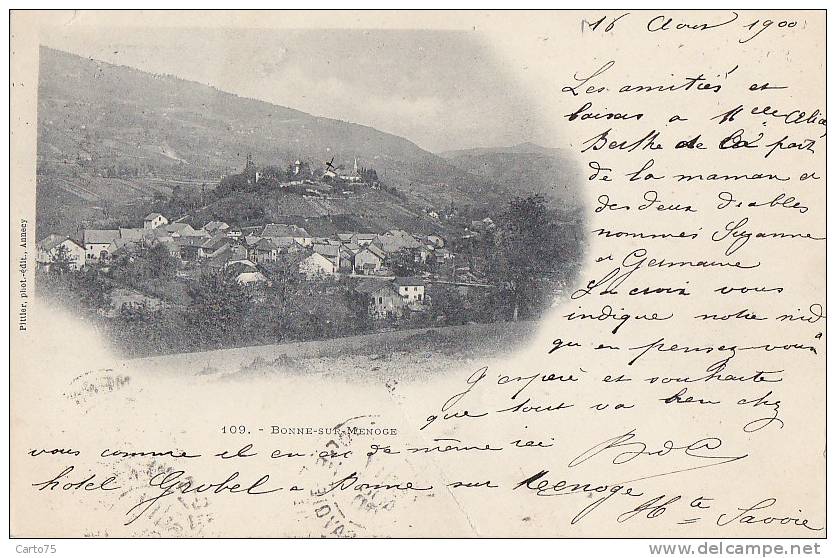 16 Aout 1900
Les amitiés et
baisers a Melle Alice
Berthe de la part
de la maman et
des deux diables
nommés Suzanne
et Germaine
La croix vous
indique notre nid
qu'en pensez-vous
J'espère et souhaite
que tout va bien chez
vous comme il en est de même ici
BdC
hotel Grobel a Bonne sur Menoge
Hte Savoie
109. - BONNE-SUR-MENOGE
Pittier, phot.-édit., Annecy
Carto75
http://www.delcampe.net